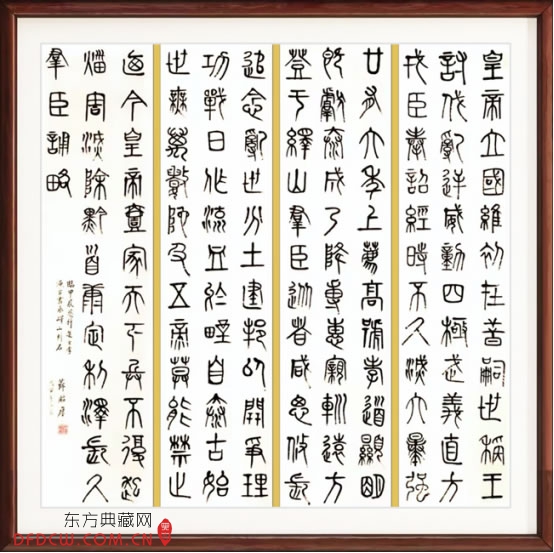 皇帝立國維初在昔嗣世稱王
討伐亂逆威動四極武義直方
戎臣奉詔經時不久滅六暴強
廿有六年上薦高號孝道顯明
既獻泰成乃降專惠親巡遠方
登于繹山羣臣從者咸思攸長
追念亂世分土建邦以開爭理
功戰日作流血於野自泰古始
世無萬數陀及五帝莫能禁止
廼今皇帝壹家天下兵不復起
災害滅除黔首康定利澤長久
羣臣誦略
东方典藏网
DFDCW.COM.CN